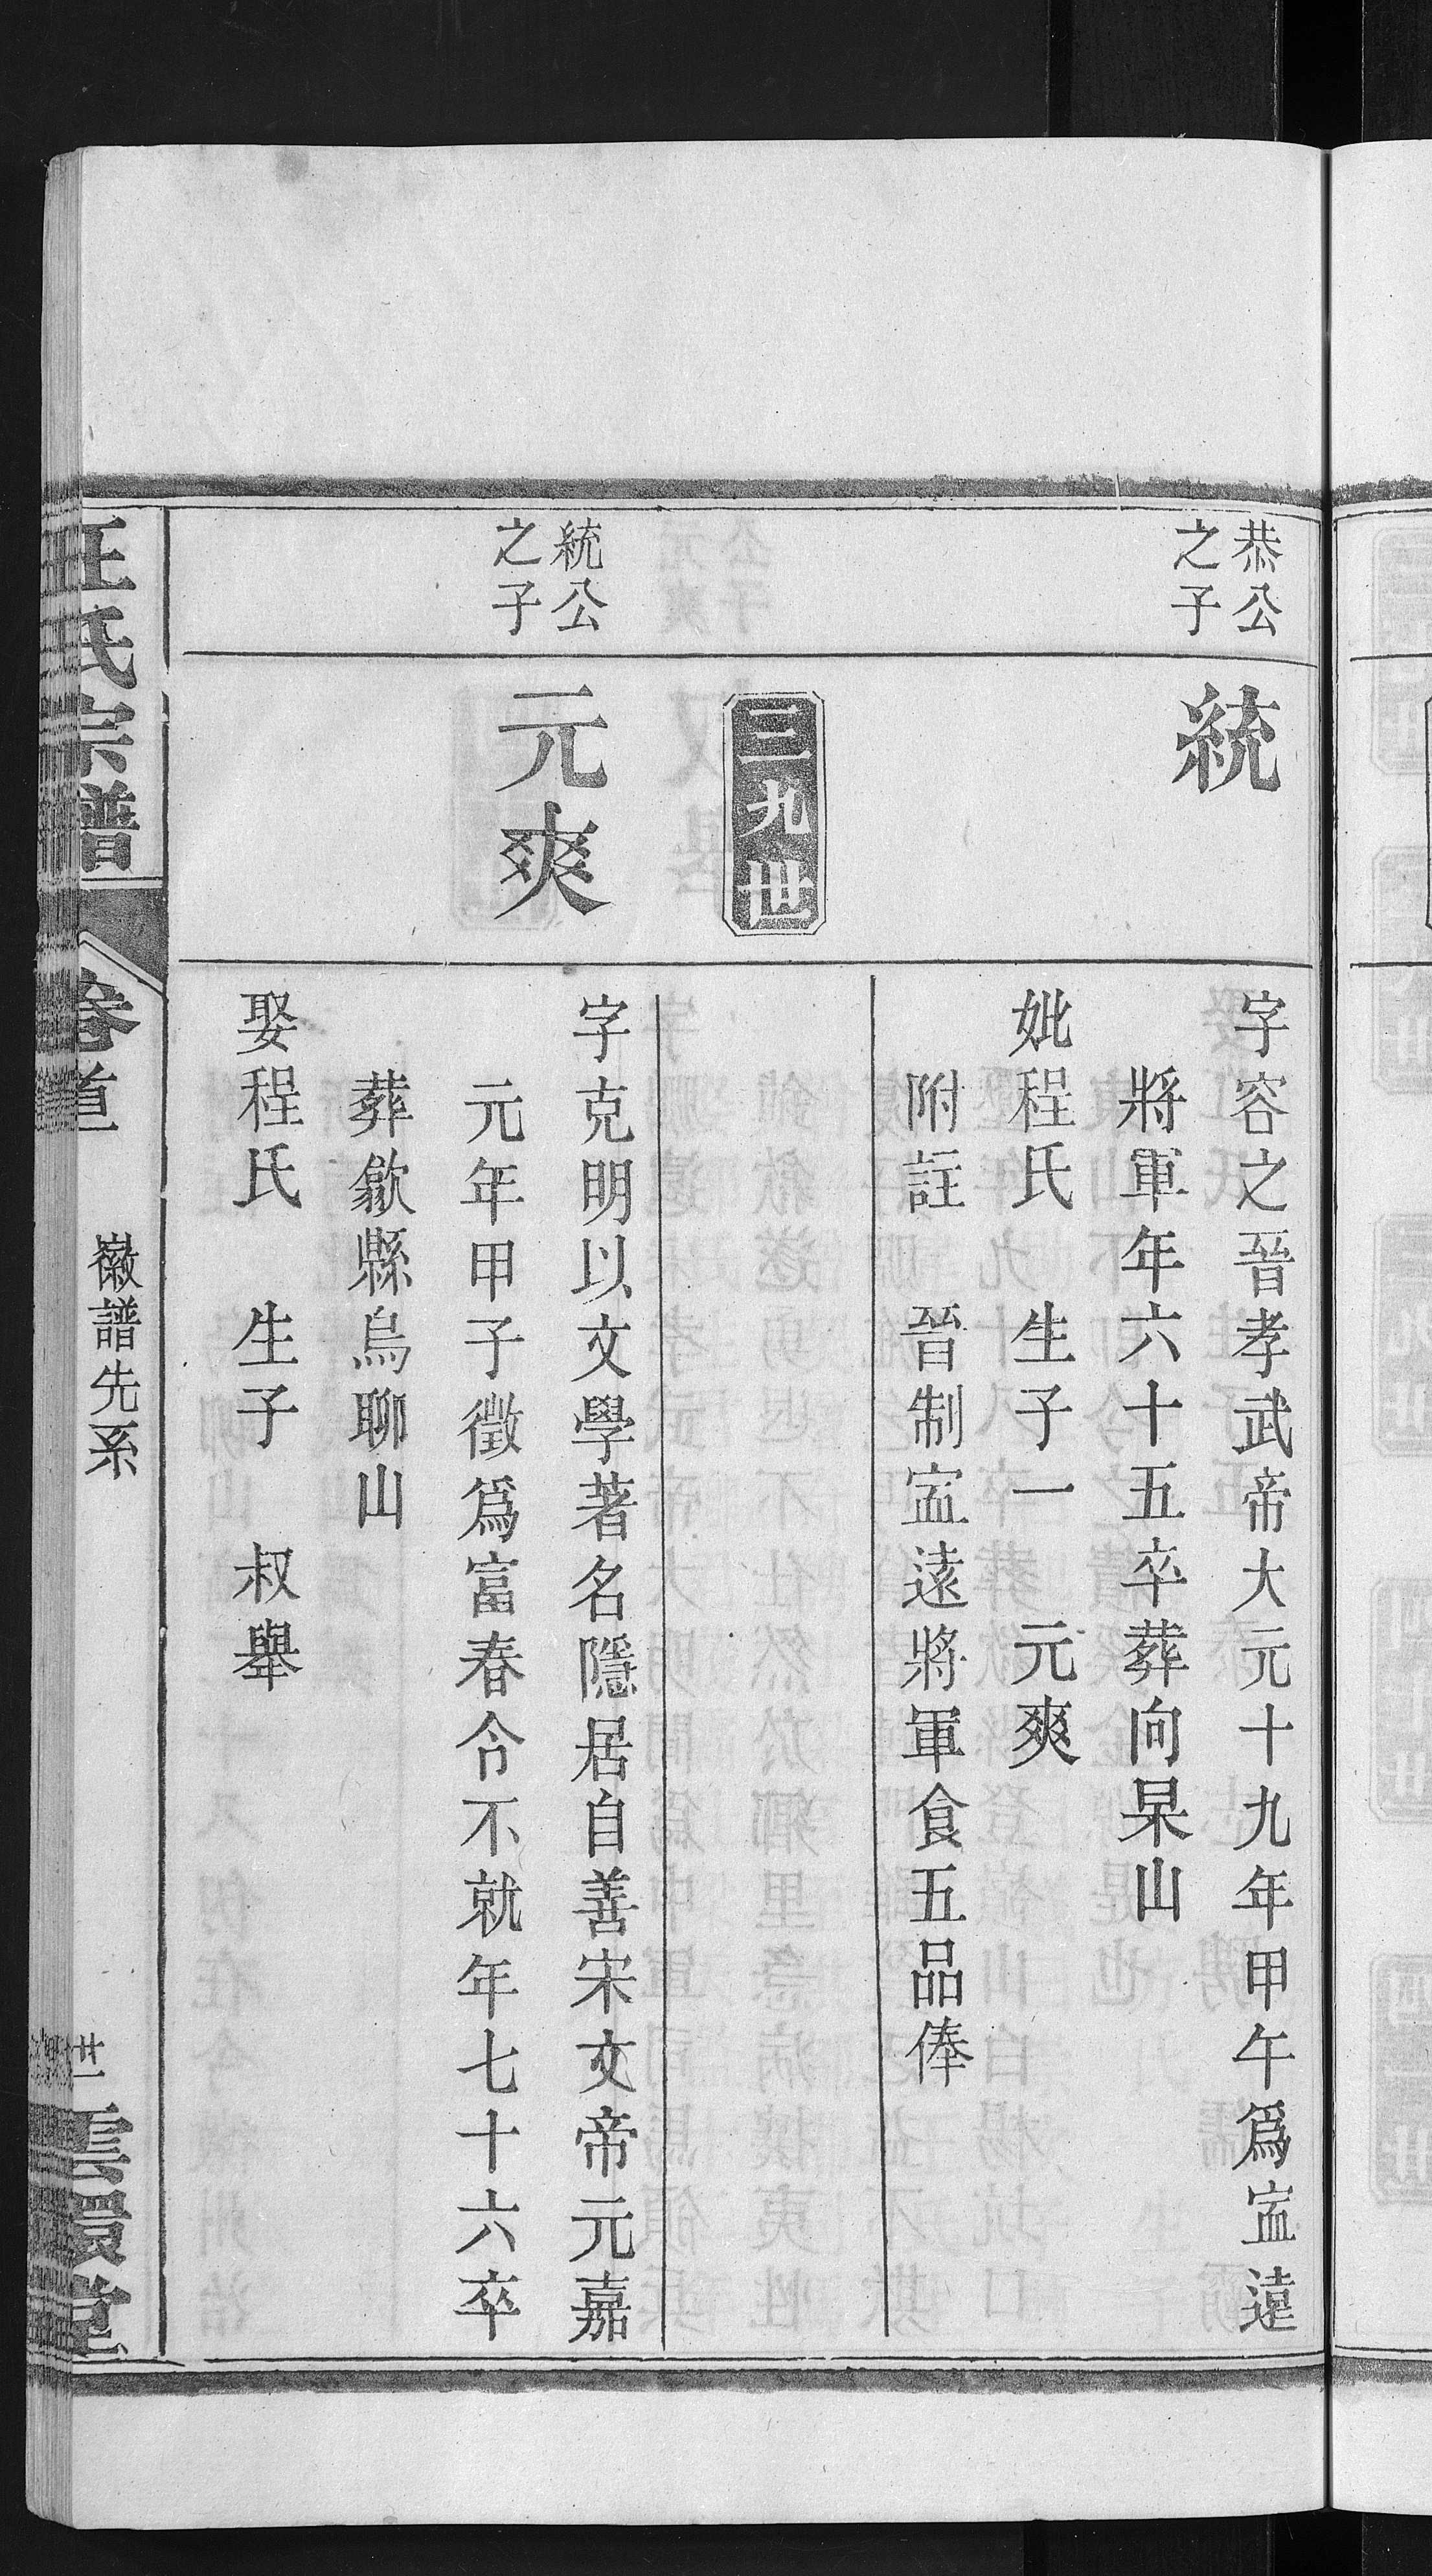 恭公
之子
統
字容之晉孝武帝大元十九年甲午爲寍遠
將軍年六十五卒葬向杲山
妣程氏　生子一　元爽
附註　晉制寍遠將軍食五品俸
三九世
統公
之子
元爽
字克明以文學著名隱居自善宋文帝元嘉
元年甲子徵爲富春令不就年七十六卒
葬歙縣烏聊山
娶程氏　生子　叔舉
汪氏宗譜
卷首
徽譜先系
廿一
雲環堂